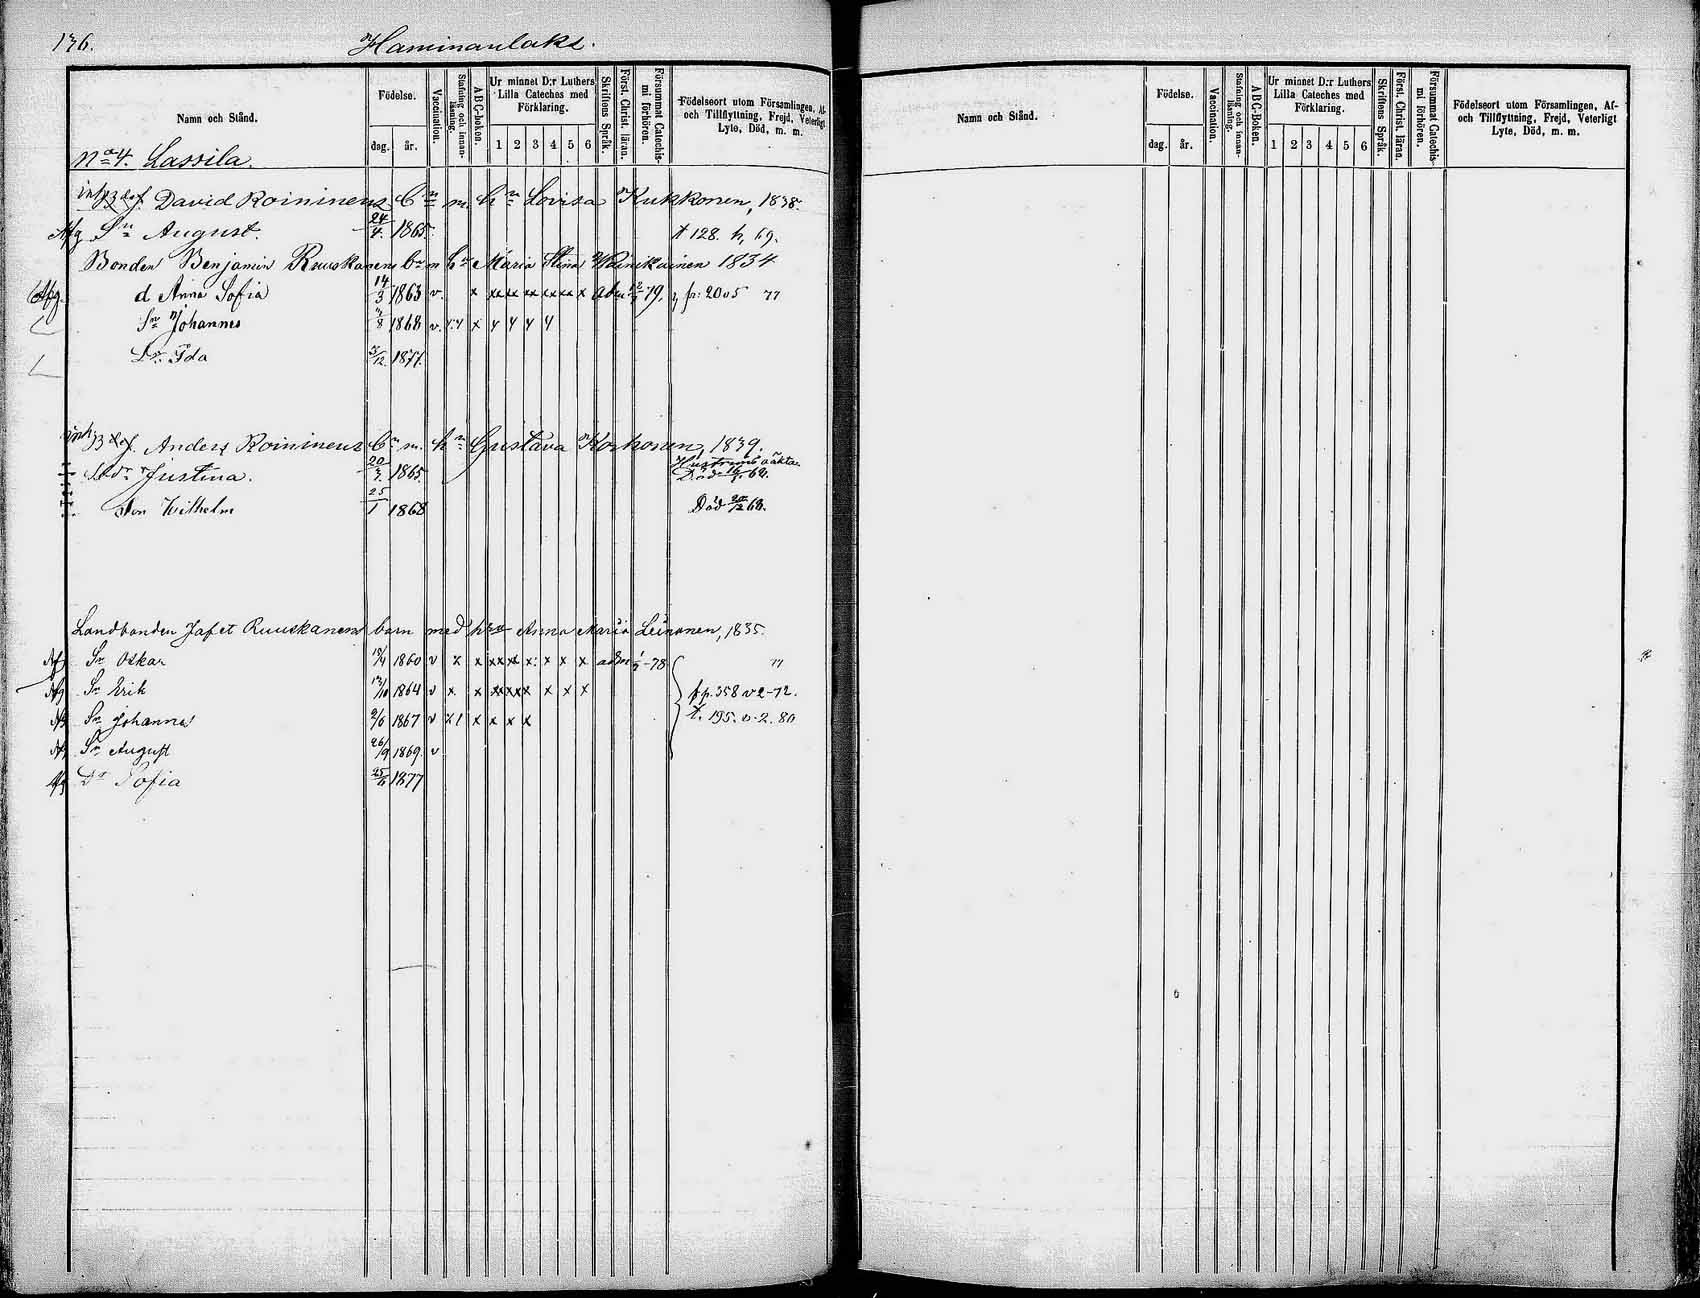 136. Haminanlaks.
Namn och Stånd.
Födelse.
dag. år.
Vaccination.
Stafning och innanläsning.
ABC-boken.
Ur minnet D:r Luthers Lilla Cateches med Förklaring.
1 2 3 4 5 6
Skriftens Språk.
Först. Christ. läran.
Försummat Catechismi förhören.
Födelseort utom Församlingen, Af- och Tillflyttning, Frejd, Veterligt Lyte, Död, m. m.
No 4. Lassila.
David Roininens Bn m. hn Lovisa Kukkonen, 1838.
Afg Sn August. 24/4. 1865. 128. h, 69.
Bonden Benjamin Ruuskanens bn m hu Maria Stina 1834
Afg. d Anna Sofia 14/3 1863 v. x xx xx xx xx xx x 79. fr: 2005 77
Sn Johannes /8 1868 v. x
Dr. Ida /12. 1877.
Anders Roininens Bn m. hn Gustava Korhonen, 1839.
Justina. 20/7. 1865. Död 68.
Son Wilhelm 25/1 1868 Död 68.
Landbonden Jafet Ruuskanens barn med hru Anna Maria Leinonen, 1835.
Afg Sn Oskar 1860 v x x xx xx x x x x adm -78 77
Afg Sn Erik /10 1864 v x x xx xx x x x x p. 358 v 2-72.
Afg Sn Johannes /6 1867 v x x x x 195. v. 2. 80
Afg Sn August 26/9 1869. v
Afg Dr Sofia 1877
Namn och Stånd.
Födelse.
dag. år.
Vaccination.
Stafning och innanläsning.
ABC-Boken.
Ur minnet D:r Luthers Lilla Cateches med Förklaring.
1 2 3 4 5 6
Skriftens Språk.
Först. Christ. läran.
Försummat Catechismi förhören.
Födelseort utom Församlingen, Af- och Tillflyttning, Frejd, Veterligt Lyte, Död, m. m.